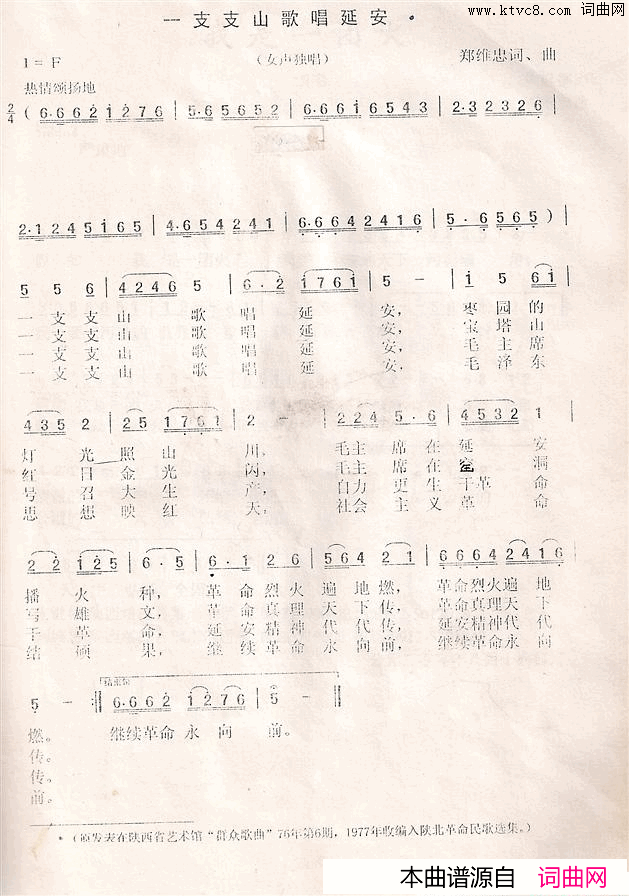 www.ktvc8.com 词曲网
一支支山歌唱延安 *
1=F
（女声独唱）
郑维忠词、曲
热情颂扬地
2/4 ( 6·6 6 2 1 2 7 6 | 5·6 5 6 5 0 5 2 | 6·6 6 1 6 5 6 5 | 2·3 2 3 2 6 |
2·1 2 4 5 1 6 5 | 4·6 5 4 2 2 4 1 | 6·6 6 4 2 4 1 6 | 5·6 5 6 5 ) |
5 5 6 | 4 2 4 6 5 | 6·2 1 7 6 1 | 5 - | 1 5 6 1 |
一支支山歌唱延安，枣园的
一支支山歌唱延安，宝塔山
一支支山歌唱延安，毛主席
一支支山歌唱延安，毛泽东
4 3 5 2 | 2 5 1 7 6 1 | 2 - | 2 2 4 5·6 | 4 5 3 2 1 |
灯光照山川，毛主席在延安
红日金光闪，毛主席在窑洞
号召大生产，自力更生干革命
思想映红天，社会主义革命
2 2 1 2 5 | 6·5 | 6·1 2 6 | 5 6 4 2 1 | 6 6 6 4 2 4 1 6 |
播火种，革命烈火遍地燃，革命烈火遍地
写雄文，革命真理天下传，革命真理天下
干革命，延安精神代代传，延安精神代代
结硕果，继续革命永向前，继续革命永向
5 - :| 6·6 6 2 1 2 7 6 | 5 - ‖
结束句
燃。 继续革命永向前。
传。
传。
前。
*（原发表在陕西省艺术馆“群众歌曲”76年第6期，1977年收编入陕北革命民歌选集。）
本曲谱源自 词曲网